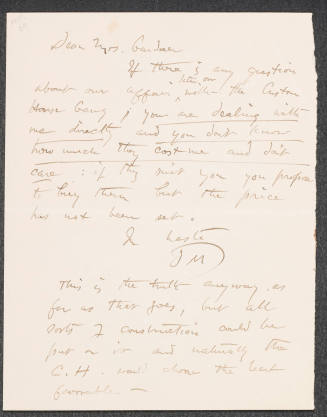 Dear Mrs. Gardner
If there is any question
later on
about our affairs with the Custom
House being; you are dealing with
me directly and you don't know
how much they cost me and don't
care: if they suit you you propose
to buy them but the price
has not been set.
In haste
This is the truth anyway, as
far as that goes, but all
sorts of constructions could be
put on it and naturally the
C. H. would choose the least
favorable —